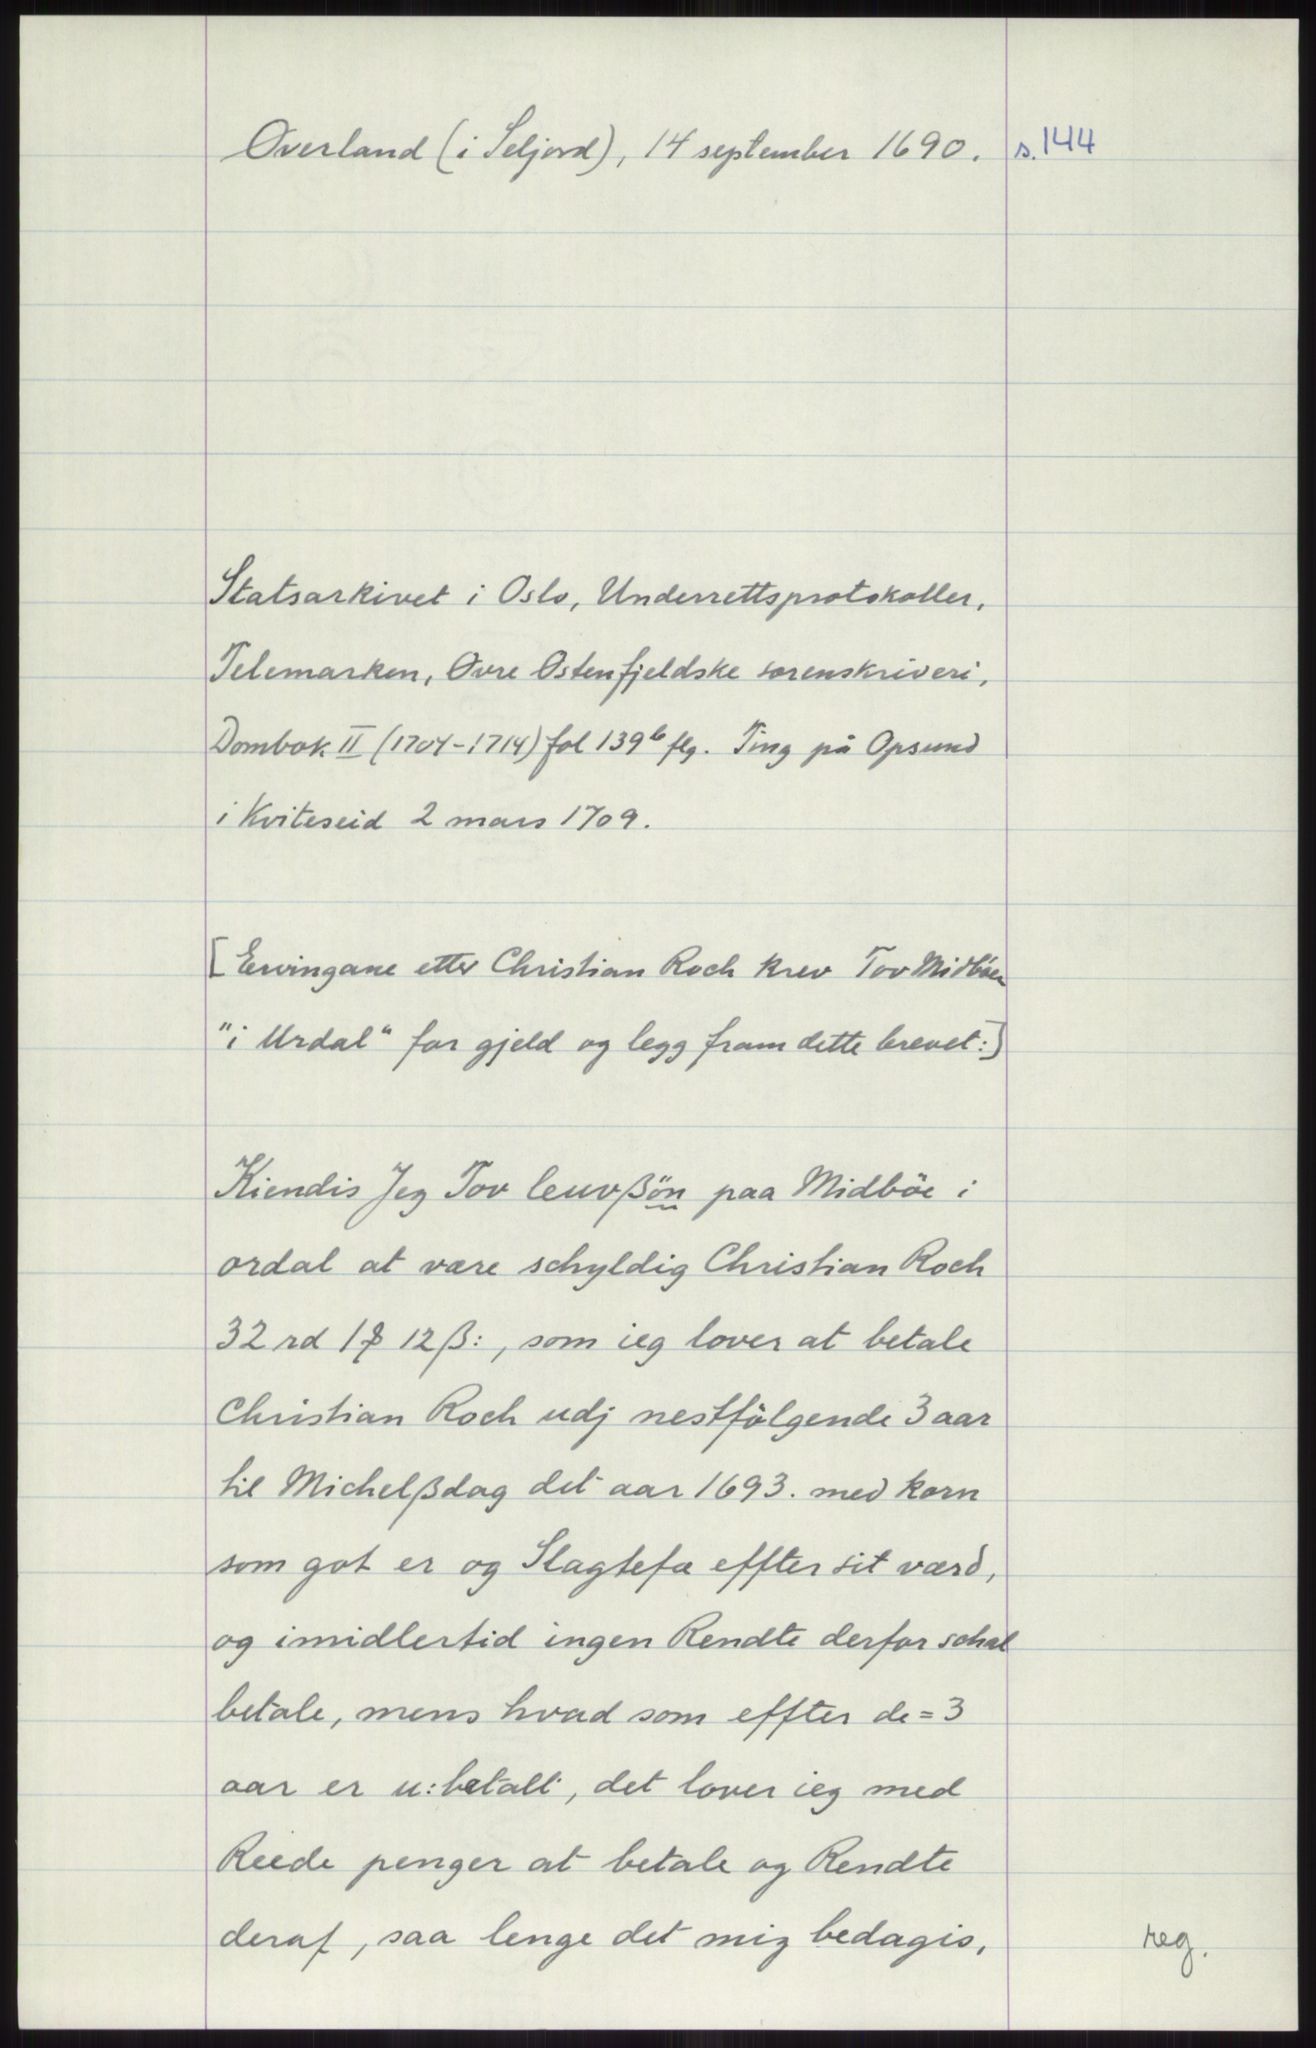 Overland (i Seljord), 14 september 1690. s. 144
Statsarkivet i Oslo, Underrettsprotokoller,
Telemarken, Øvre Østenfjeldske sorenskriveri,
Dombok II (1704-1714) fol 139b flg. Ting på Opsund
i Kviteseid 2 mars 1709.
[Ervingane etter Christian Roch krev Tov Midböen
"i Urdal" for gjeld og legg fram dette brevet:]
Kiendis Jeg Tov leuvßön paa Midböe i
ordal at være schyldig Christian Roch
32 rd 1 12 ß:, som ieg lover at betale
Christian Roch udj nestfölgende 3 aar
til Michelßdag det aar 1693. med korn
som got er og Slagtefæ effter sit værd,
og imidlertid ingen Rendte derfor schal
betale, mens hvad som effter de=3
aar er u:betalt, det lover ieg med
Reede penger at betale og Rendte
deraf, saa lenge det mig bedagis,
reg.